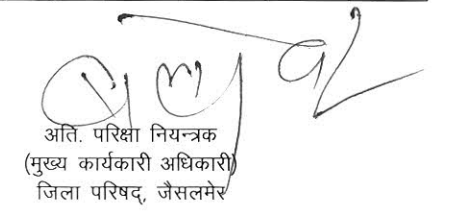 अति. परिक्षा नियन्त्रक
(मुख्य कार्यकारी अधिकारी)
जिला परिषद्, जैसलमेर